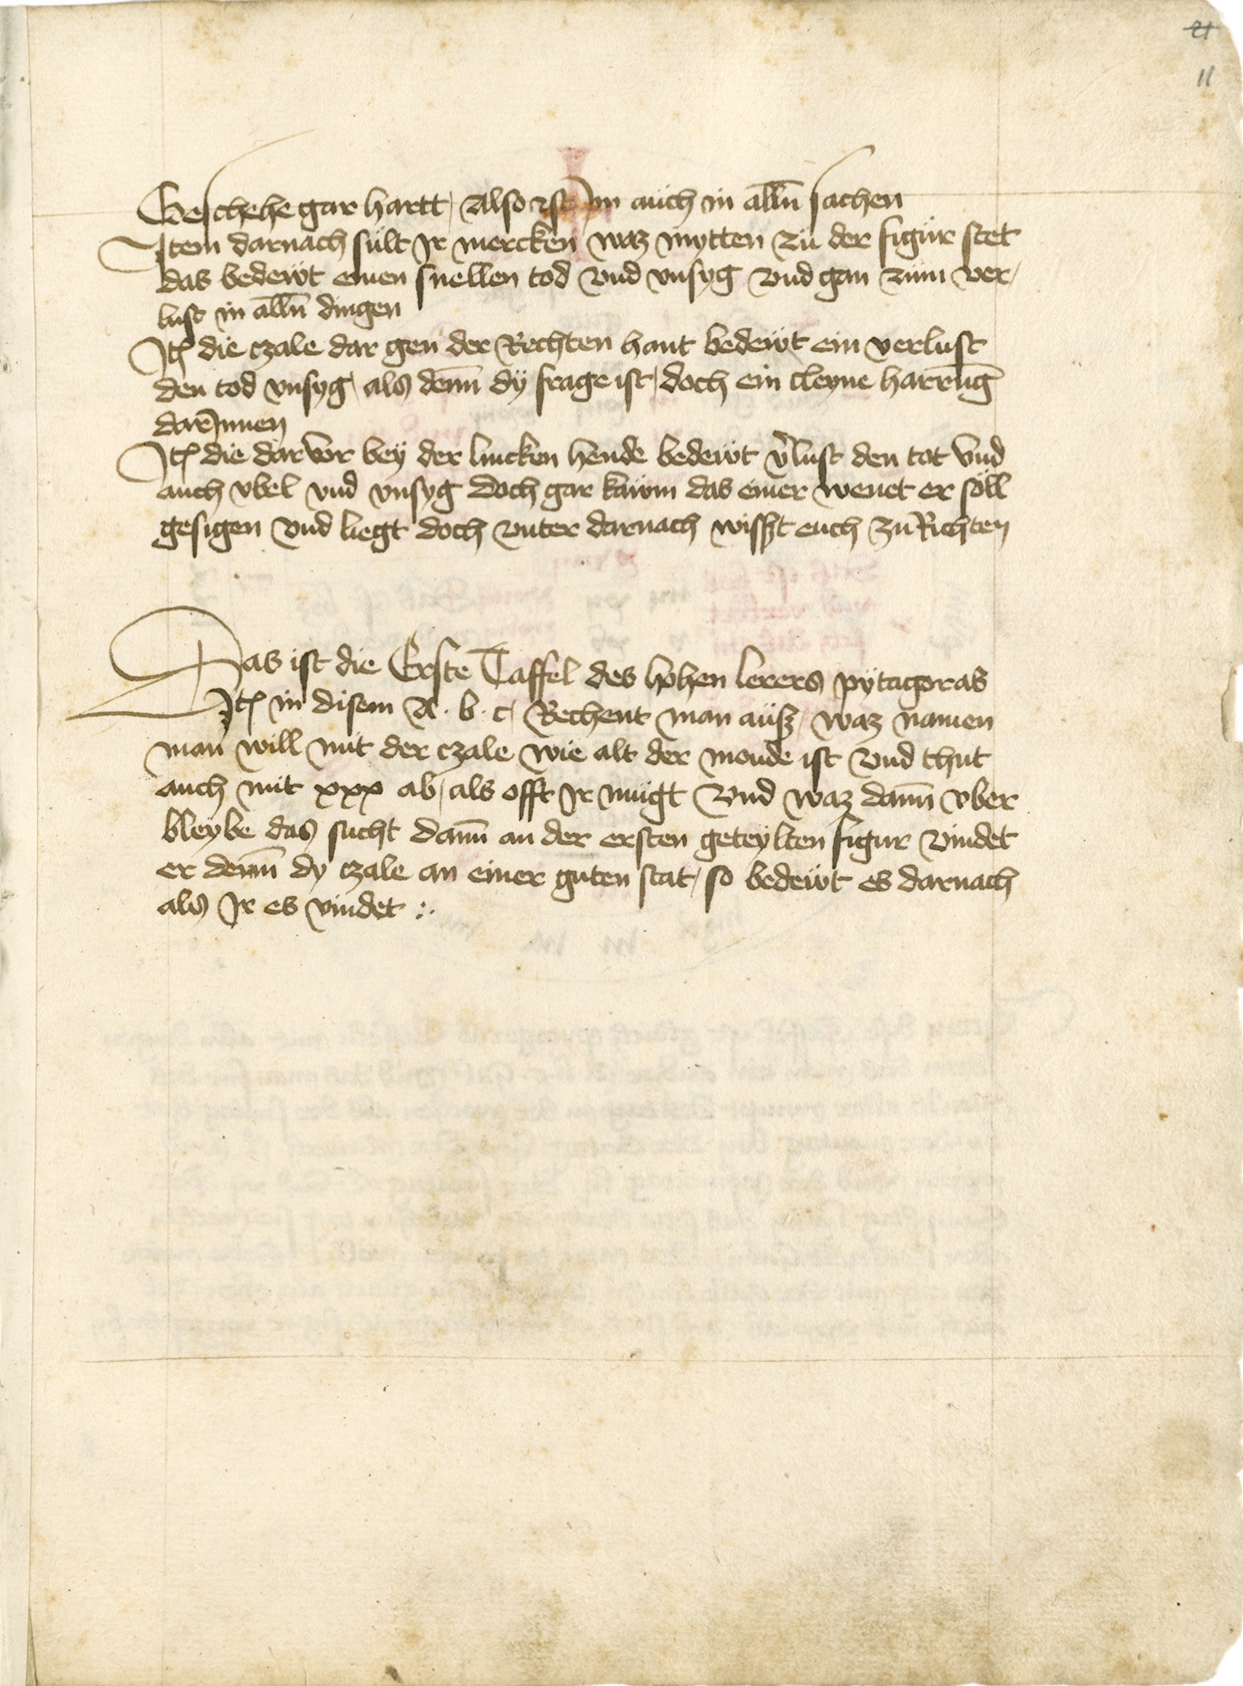 21
11
Geschehe gar hartt / Also ist Im auch in alln̄ sachen
Item darnach sült Ir mercken waz mytten zü der figür stet
das bedewt einen snellen tod vnd vnsyg vnd gan züm ver/
lust in alln̄ dingen
Itē die czale dar gen der Rechten hant bedewt ein verlust
den tod vnsyg / als denn̄ dÿ frage ist / doch ein cleyne harrūg
darInnen
Itē die darvor bey der lincken hende bedewt v̄lust den tot vnd
auch vbel vnd vnsyg doch gar kawm das einer wenet er söll
gesigen vnd liegt doch vnter darnach wisst euch zu Richten
Das ist die Erste Taffel des hohen lerers pÿtagoras
Itē in disem A · b · c / Rechent man aüsz / waz namen
man will mit der czale wie alt der monde ist vnd thut
auch mit xxx ab / als offt Ir mügt vnd waz dann̄ vber
bleybe das sucht dann̄ an der ersten geteylten figur vindet
er denn̄ dy czale an einer guten stat / so bedewt es darnach
als Ir es vindet :·